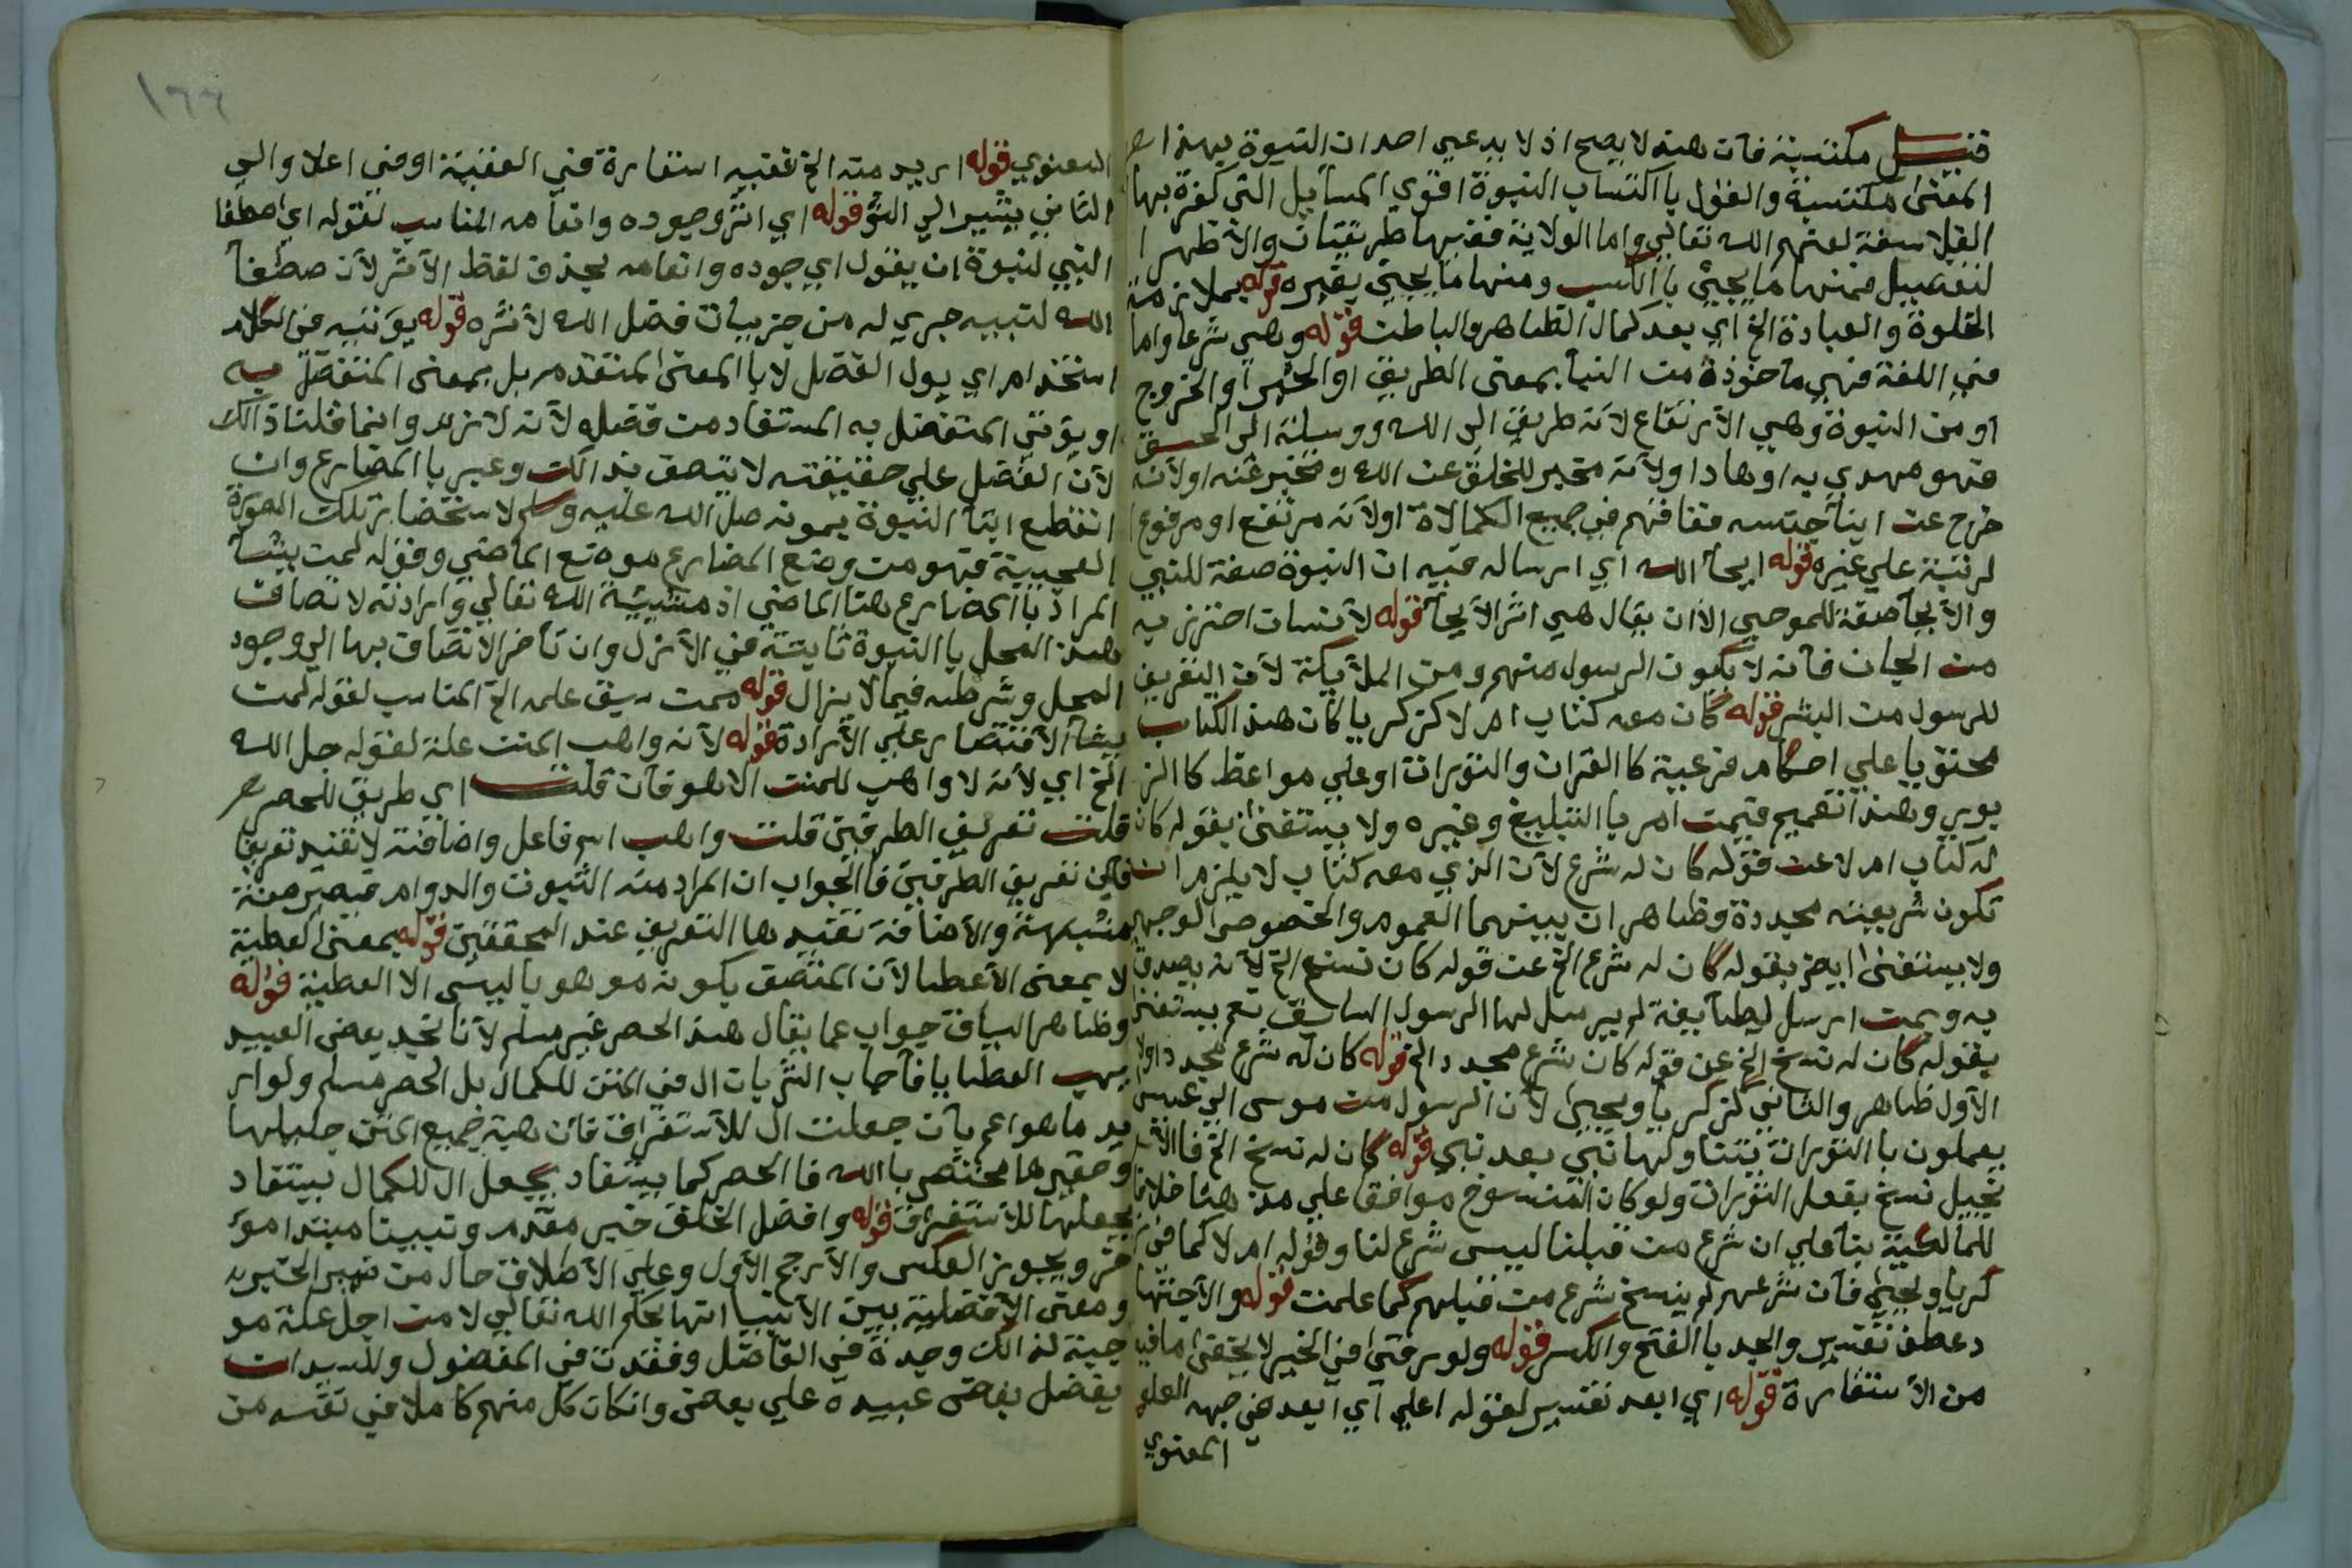 قيل مكتسبة فان هذا لا يصح اذ لا يدعي احد ان النبوة بهذا
المعنى مكتسبة والقول با اكتساب النبوة اقوي المسايل التي كفرة بها
الفلاسفة لعنهم الله تعالي واما الولاية ففيها طريقتان والأظهر ا
لتفصيل فمنها ما يجيئ با الكسب ومنها ما يجيئ بغيره قوله بملازمة
الخلوة والعبادة الخ اي بعد كمال الظاهر والباطن قوله وهي شرعا واما
في اللغة فهي مأخوذة من النبأ بمعنى الطريق او الخبر او الخروج
او من النبوة وهي الأرتفاع لأنه طريق الى الله ووسيلة الى الحق
فهو مهدي به او هاد اولأنه مخبر للخلق عن الله ومخبر عنه اولأنه
خرج عن ابنأ جنسه ففاقهم في جميع الكمالاة اولأنه مرتفع او مرفوع
لرتبة علي غيره قوله ايحآ الله اي ارساله فيه ان النبوة صفة للنبي
والأيحآ صفة للموحي الأان يقال هي اثر الأيحآ قوله لأنسان احترز به
من الجان فأنه لا يكون الرسول منهم ومن الملأيكة لأن التعريف
للرسول من البشر قوله كان معه كتاب ام لا كزكريا كان هذا الكتاب
محتويا علي احكام فرعية كا القران والتوراة او علي مواعظ كا الز
بور وهذا تعميم فيمن امر با التبليغ وغيره ولا يستغنى بقوله كان
له كتاب ام لا عن قوله كان له شرع لأن الذي معه كتاب لا يلزم ان
تكون شريعته مجددة وظاهر ان بينهما العموم والخصوص الوجهي
ولا يستغنى ايض بقوله كان له شرع الخ عن قوله كان نسخ الخ لأنه يصدق
به وبمن ارسل لطايفة لم يرسل لها الرسول السابق نعم يستغنى
بقوله كان له نسخ الخ عن قوله كان شرع مجدد الخ قوله كان له شرع مجدد اولا
الأول ظاهر والثاني كزكريا ويحيى لأن الرسول من موسى الي عيسى
يعملون با التوراة يتناولها نبي بعد نبي قوله كان له نسخ الخ فا
نجيل نسخ بعض التوراة ولو كان المنسوخ موافقا علي مذهبنا خلافا
للمالكية بنآ علي ان شرع من قبلنا ليس شرع لنا وقوله ام لا كما في ز
كريا ويحيى فأن شرعهم لم ينسخ شرع من قبلهم كما علمت قوله والأجتها
د عطف تفسير والجد با الفتح والكسر قوله ولو رقى في الخير لا يخفى ما فيه
من الأستعارة قوله اي ابعد تفسير لقوله اعلي اي ابعد في جهه العلو
المعنوي
١٦٦
المعنوي قوله اريد منه الخ ففيه استعارة في العقبة او في اعلا والي
الثاني يشير الي الثؤ قوله اي اثر وجوده وانعامه المناسب لقوله اي اصطفا
النبي لنبوة ان يقول اي جوده وانعامه بحذف لفظ الأثر لأن صطفأ
الله لنبيه جري له من جزييات فضل الله لأثره قوله يؤتيه في الكلام
استخدام اي يول الفضل لا با المعنى المتقدم بل بمعنى المتفضل به
او يؤتي المتفضل به المستفاد من فضله لأنه لا نزله وانما قلنا ذالك
لأن الفضل علي حقيقته لا يتصف بذالك وعبر با المضارع وان
انقطع ايتآ النبوة بموته صل الله عليه وسلم لاستحضار تلك الصورة
العجيبة فهو من وضع المضارع موضع الماضي وقوله لمن يشآ
المراد با المضارع هنا الماضي اذ مشيئة الله تعالي وارادته لاتصاف
هذا المحل با النبوة ثابتة في الأزل وان تأخر الأتصاف بها الي وجود
المحل وشرطه فيما لا يزال قوله ممن سبق علمه الخ المناسب لقوله لمن
يشآ الأقتصار علي الأرادة قوله لأنه واهب المنن علة لقوله جل الله
الخ اي لأنه لا واهب للمنن الا هو فأن قلت اي طريق للحصر
قلت تعريف الطرفين قلت واهب اسم فاعل واضافته لا تفيد تعريفا
فأين تعريف الطرفين فا الجواب ان المراد منه الثبوت والدوام فيصير صفة
مشبهة والأضافة تفيدها التعريف عند المحققين قوله بمعنى العطية
لا بمعنى الأعطا لأن المتصف بكونه موهوبا ليس الا العطية قوله
وظاهر السياق جواب عما يقال هذا الحصر غير مسلم لأنا نجد بعض العبيد
يهب العطايا فأجاب الشر بان ال في المنن للكمال بل الحصر مسلم ولو ار
يد ما هو اعم بأن جعلت ال للأستغراق فأن هبة جميع المنن جليلها
وحقيرها مختص با الله فا الحصر كما يستفاد بجعل ال للكمال يستفاد
بجعلها للأستغراق قوله وافضل الخلق خبر مقدم ونبينا مبتدا مؤ
خر ويجوز العكس والأرجح الأول وعلي الأطلاق حال من ضمير الخبريه
ومعنى الأفضلية بين الأنبيا انها بحكم الله تعالي لا من اجل علة مو
جبة لذالك وجدة في الفاضل وفقدت في المفضول وللسيد ان
يفضل بعض عبيده علي بعض وانكان كل منهم كاملا في نفسه من